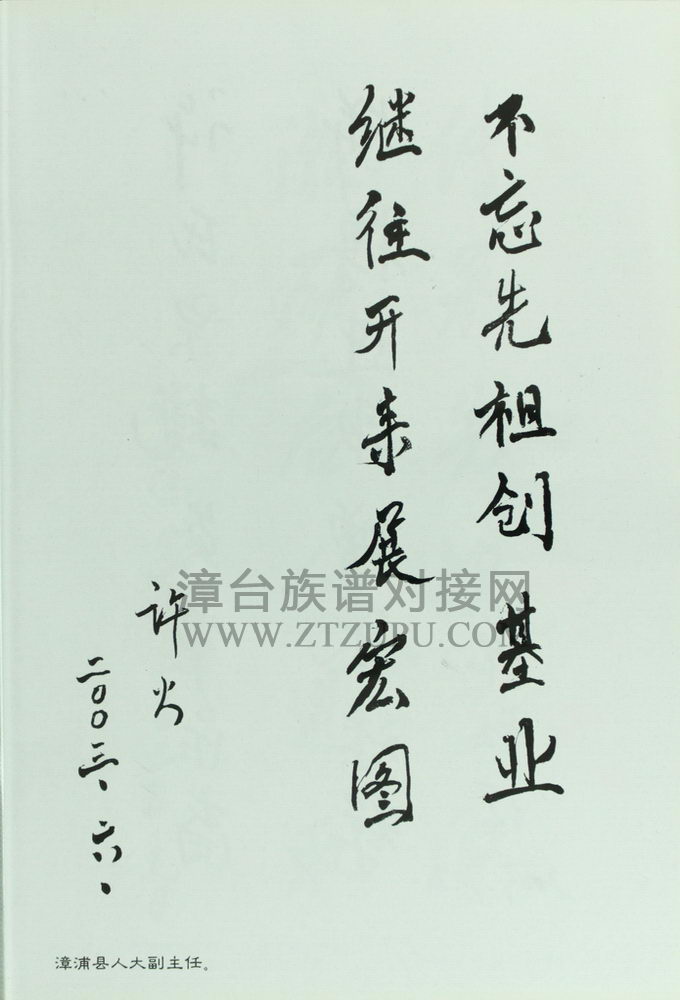 不忘先祖创基业
继往开来展宏图
许火
二〇〇三、六、
漳台族谱对接网
WWW.ZTZUPU.COM
漳浦县人大副主任。